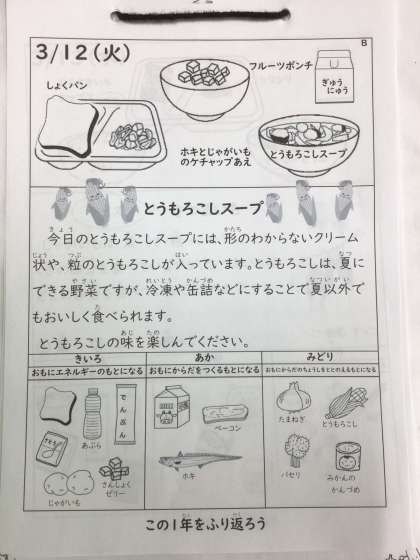 B
3/12(火)
フルーツポンチ
ぎゅう
にゅう
しょくパン
ホキとじゃがいも
のケチャップあえ
とうもろこしスープ
とうもろこしスープ
今日のとうもろこしスープには、形のわからないクリーム
状や、粒のとうもろこしが入っています。とうもろこしは、夏に
できる野菜ですが、冷凍や缶詰などにすることで夏以外で
もおいしく食べられます。
とうもろこしの味を楽しんでください。
きいろ
あか
みどり
おもにエネルギーのもとになる
おもにからだをつくるもとになる
おもにからだのちょうしをととのえるもとになる
でんぷん
あぶら
さとう
じゃがいも
さんしょく
ゼリー
ベーコン
ホキ
たまねぎ
とうもろこし
パセリ
みかんの
かんづめ
この1年をふり返ろう